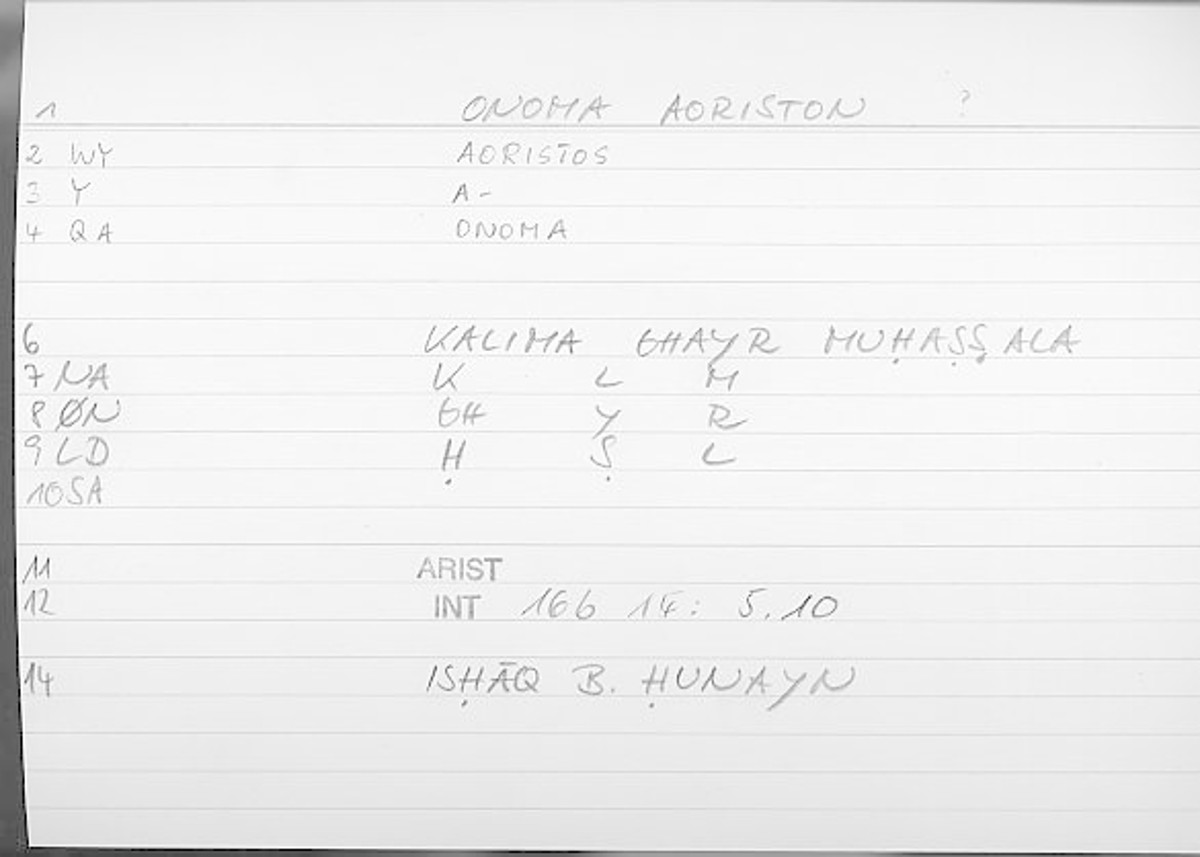 1 ONOMA AORISTON ?
2 WY AORISTOS
3 Y A-
4 QA ONOMA
6 KALIMA GHAYR MUḤAṢṢALA
7 NA K L M
8 ØN GH Y R
9 LD Ḥ Ṣ L
10 SA
11 ARIST
12 INT 166 14: 5.10
14 ISḤĀQ B. ḤUNAYN